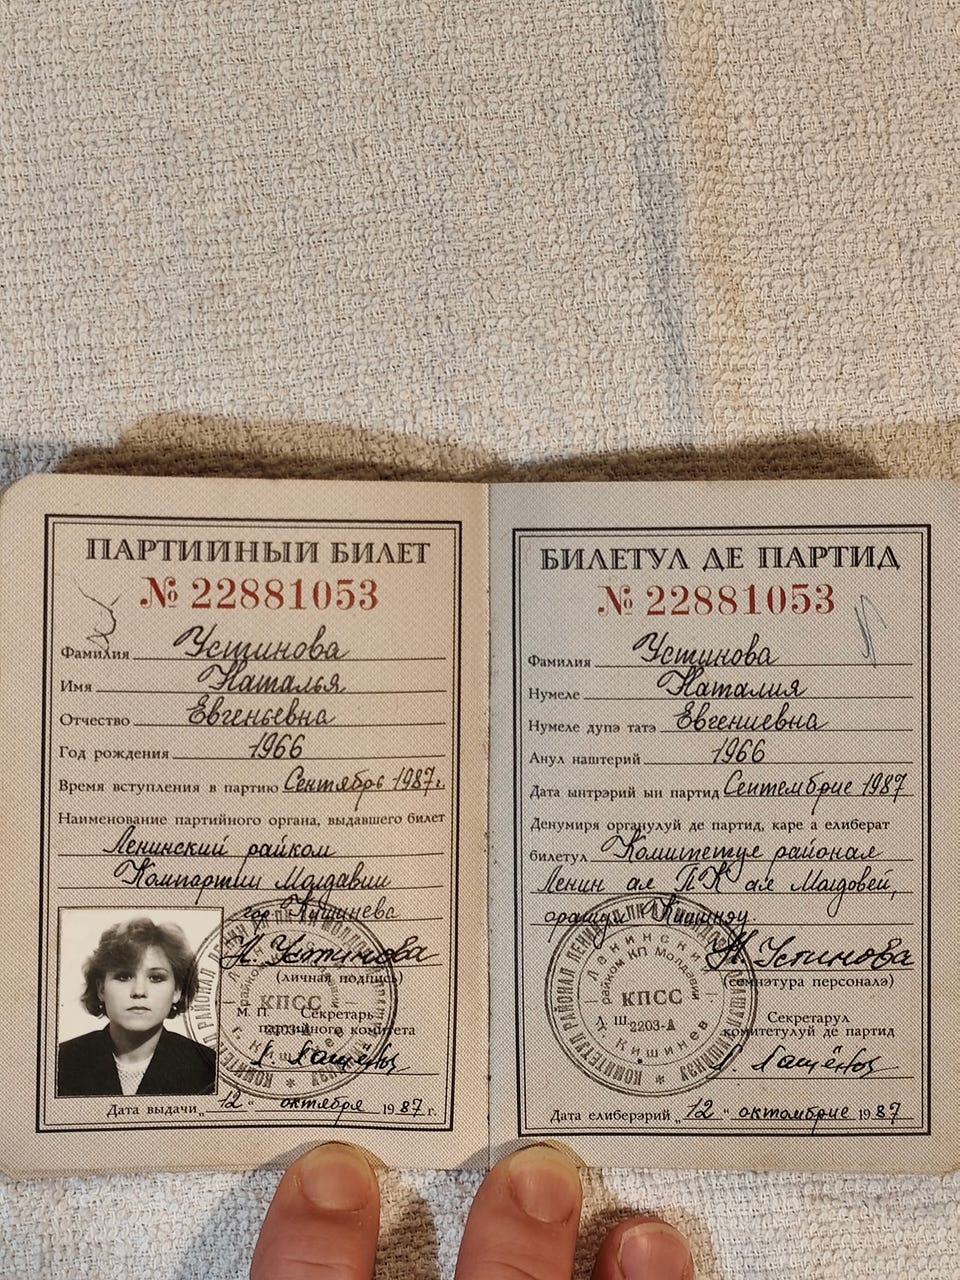 ПАРТИЙНЫЙ БИЛЕТ
№ 22881053
Фамилия Устинова
Имя Наталья
Отчество Евгеньевна
Год рождения 1966
Время вступления в партию Сентябрь 1987г.
Наименование партийного органа, выдавшего билет
Ленинский райком
Компартии Молдавии
гор. Кишинева
Н. Устинова
(личная подпись)
КПСС
М. П. Секретарь
партийного комитета
Дата выдачи „12“ октября 1987 г.
БИЛЕТУЛ ДЕ ПАРТИД
№ 22881053
Фамилия Устинова
Нумеле Наталия
Нумеле дупэ татэ Евгениевна
Анул наштерий 1966
Дата ынтрэрий ын партид Септембрие 1987
Денумиря органулуй де партид, каре а елиберат
билетул Комитетул районал
Ленин ал ПК ал Молдовей,
орашул Кишинэу.
Н. Устинова
(семнэтура персоналэ)
Ленинский
райком КП Молдавии
КПСС
Л. Ш. 2203-А
г. Кишинев
Секретарул
комитетулуй де партид
Дата елиберэрий „12“ октомбрие 1987